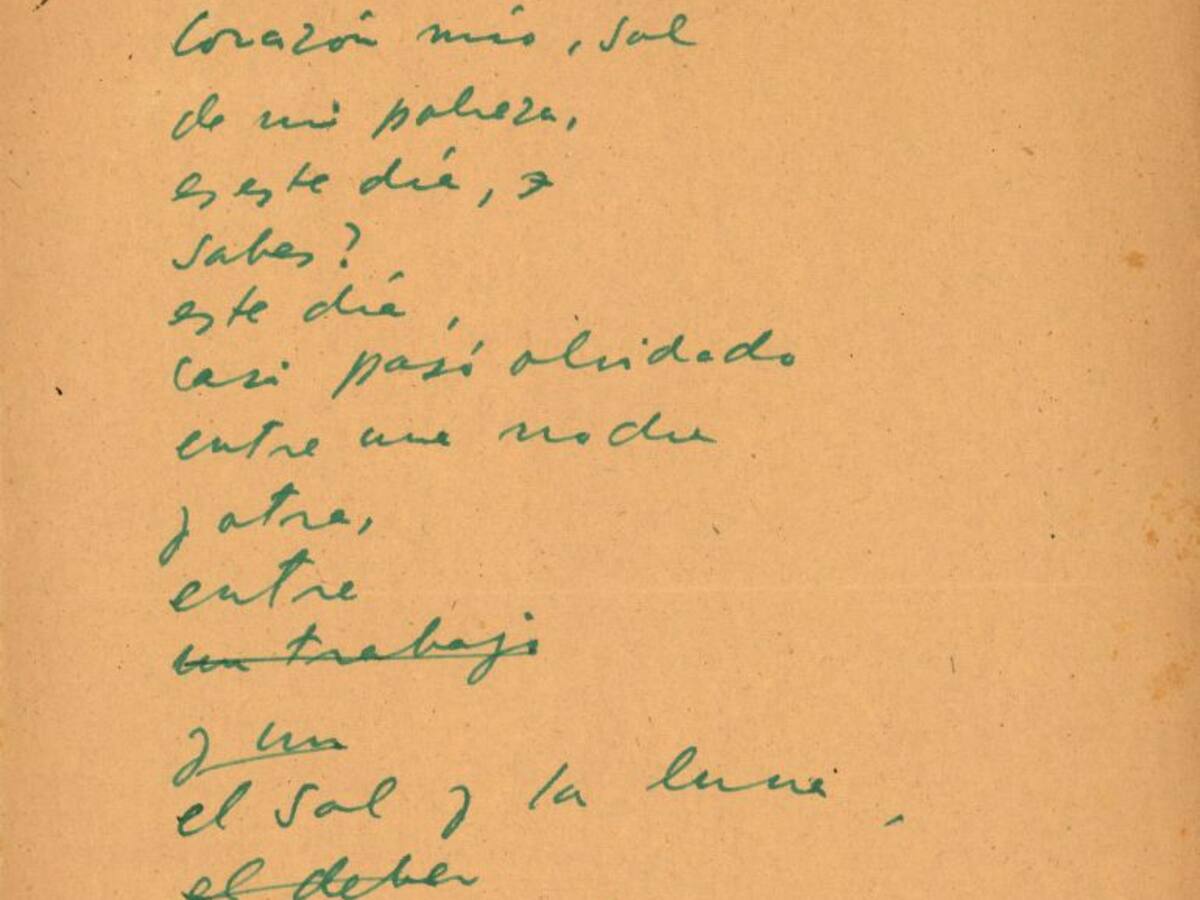 Corazón mío, sol
de mi pobreza,
es este día,
sabes?
este día,
casi pasó olvidado
entre una noche
y otra,
entre
un trabajo
y un
el sol y la luna,
el deber